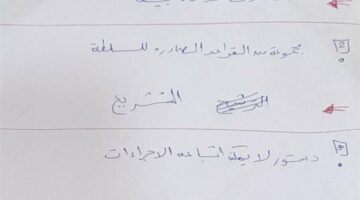 2 مجموعة من القواعد الصادرة للسلطة
التشريع
3 دستور لا يمكن اتباعه الاجراءات